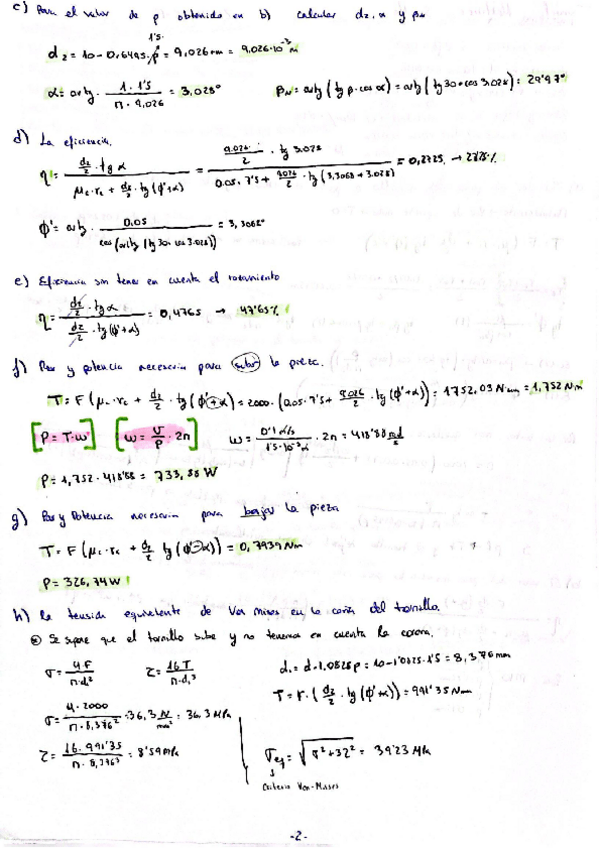 c) Para el valor de p obtenido en b) calcular d2, α y βN
1'5
d2 = 10 - 0,6495·p = 9,026 mm = 9,026·10⁻³ m
α = arctg · 1·1'5 / π·9,026 = 3,028°   βN = arctg (tg β·cos α) = arctg (tg 30·cos 3,028) = 29'97°
d) La eficiencia.
η = d2/2 · tg α / μc·rc + d2/2 · tg (ϕ'+α) = 9,026/2 · tg 3,028 / 0,05·7'5 + 9,026/2 · tg (3,3068 + 3,028) = 0,2725 → 27'25%
ϕ' = arctg · 0,05 / cos (arctg (tg 30·cos 3,028)) = 3,3068°
e) Eficiencia sin tener en cuenta el rozamiento
η = d2/2 · tg α / d2/2 · tg (ϕ'+α) = 0,4765 → 47'65%
f) Par y potencia necesaria para subir la pieza.
T = F (μc·rc + d2/2 · tg (ϕ'+α)) = 2000 · (0,05·7'5 + 9,026/2 · tg (ϕ'+α)) = 1752,03 Nmm = 1,752 Nm
[P = T·ω] [ω = V/P · 2π]   ω = 0'1 m/s / 1'5·10⁻³ m · 2π = 418'88 rad/s
P = 1,752·418'88 = 733,88 W
g) Par y Potencia necesaria para bajar la pieza
T = F (μc·rc + d2/2 tg (ϕ'-α)) = 0,7939 Nm
P = 326,74 W
h) La tensión equivalente de Von Mises en la caña del tornillo.
Se supone que el tornillo sube y no tenemos en cuenta la corona.
σ = 4F / π·d1²   τ = 16T / π·d1³   d1 = d - 1,0825p = 10 - 1'0825·1'5 = 8,376 mm
T = F·(d2/2 · tg (ϕ'+α)) = 991'35 Nmm
σ = 4·2000 / π·8,376² = 36,3 N/mm² = 36,3 MPa
τ = 16·991'35 / π·8,376³ = 8'59 MPa   σeq = √σ²+3τ² = 39'23 MPa
Criterio Von-Mises
-2-